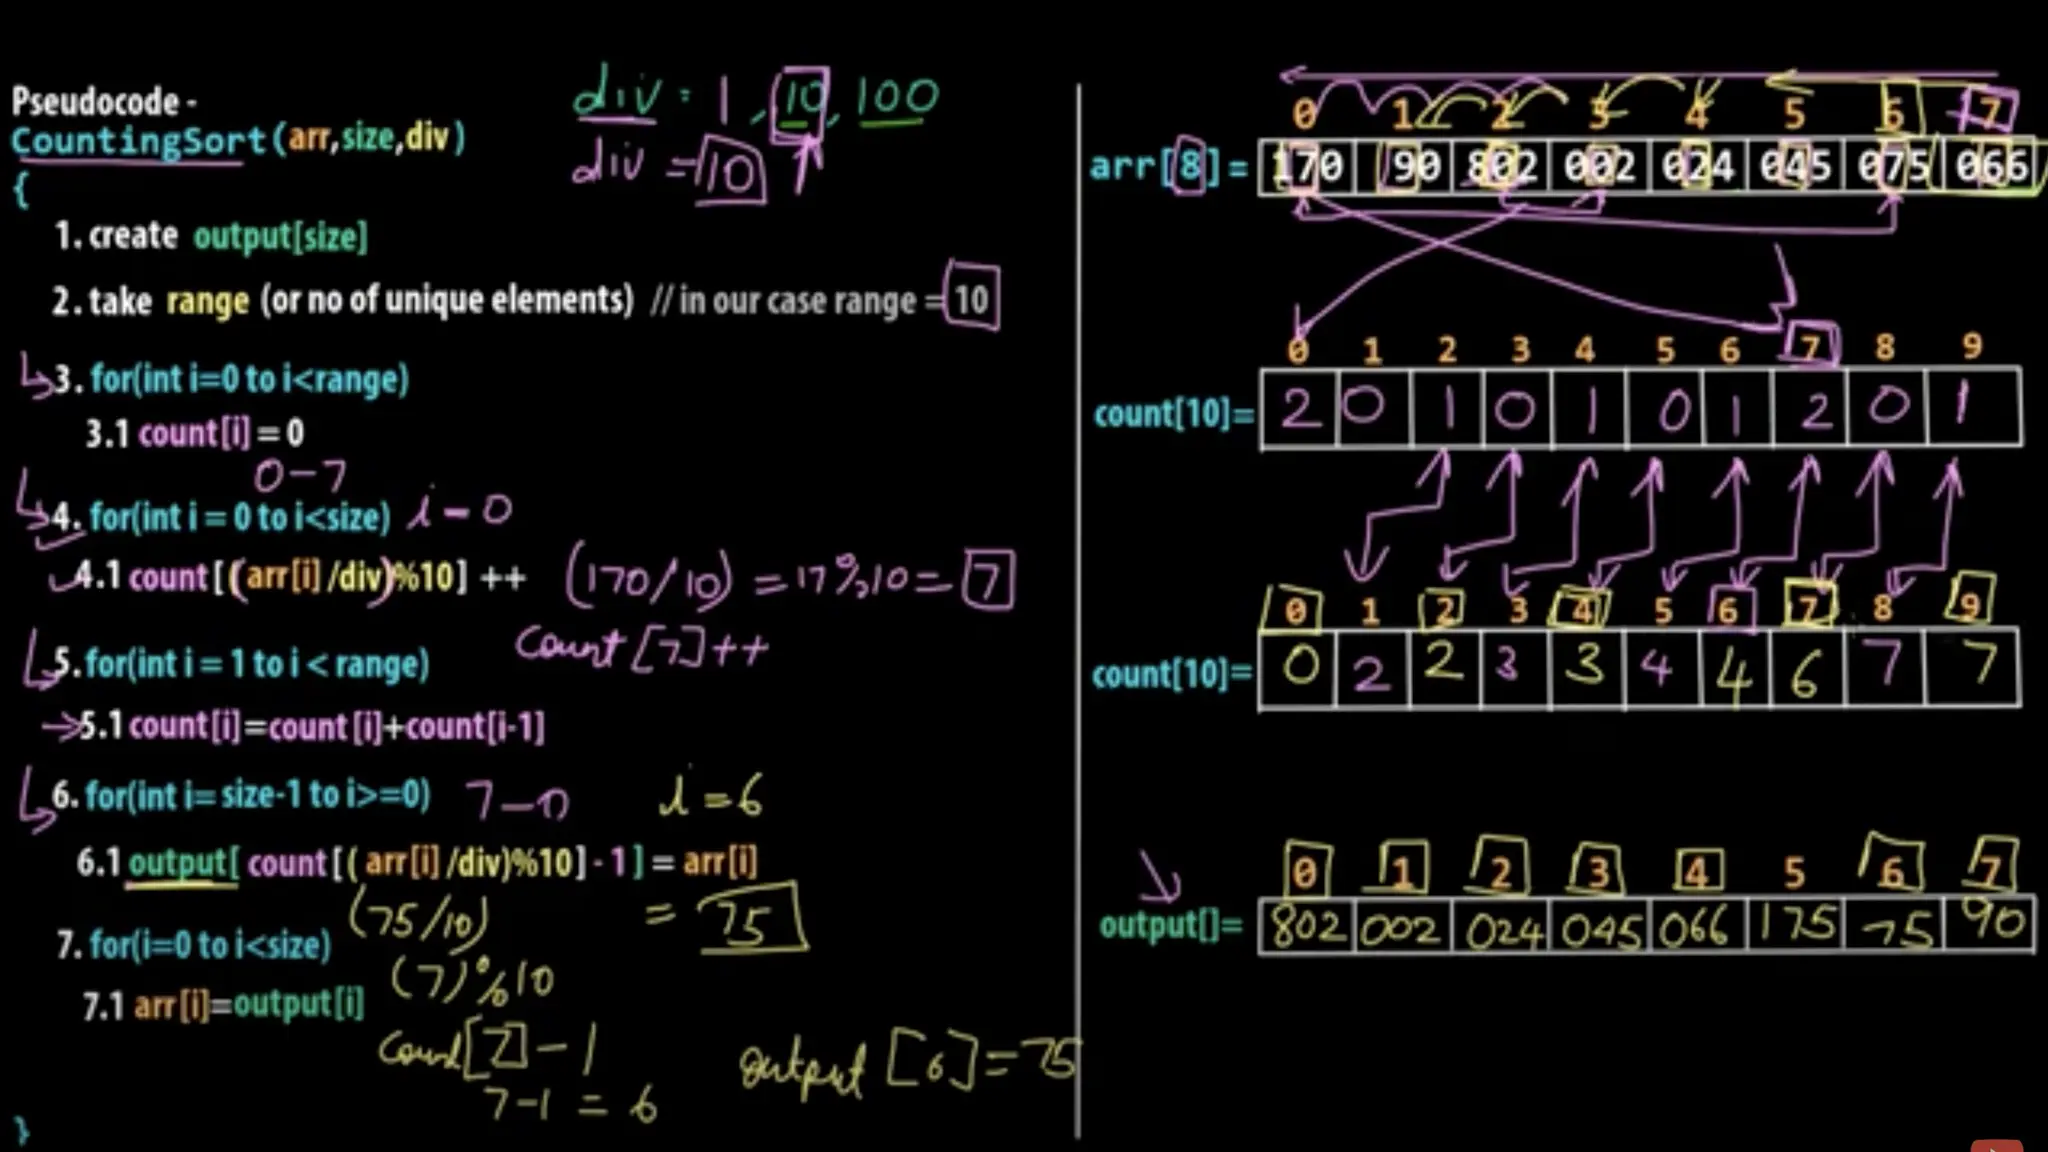 Pseudocode -
CountingSort(arr,size,div)
{
div = 1, 10, 100
div = 10
1. create output[size]
2. take range (or no of unique elements) // in our case range = 10
3. for(int i=0 to i<range)
3.1 count[i] = 0
0-7
4. for(int i = 0 to i<size) i - 0
4.1 count[(arr[i]/div)%10] ++ (170/10) = 17%10 = 7
count[7]++
5. for(int i = 1 to i < range)
5.1 count[i]=count[i]+count[i-1]
6. for(int i= size-1 to i>=0) 7-0 i=6
6.1 output[ count[( arr[i]/div)%10] - 1] = arr[i]
(75/10) = 75
7. for(i=0 to i<size)
(7)%10
7.1 arr[i]=output[i]
count[7]-1
7-1 = 6
output[6]=75
}
0 1 2 3 4 5 6 7
arr[8]= 170 90 802 002 024 045 075 066
0 1 2 3 4 5 6 7 8 9
count[10]= 2 0 1 0 1 0 1 2 0 1
0 1 2 3 4 5 6 7 8 9
count[10]= 0 2 2 3 3 4 4 6 7 7
0 1 2 3 4 5 6 7
output[]= 802 002 024 045 066 175 75 90